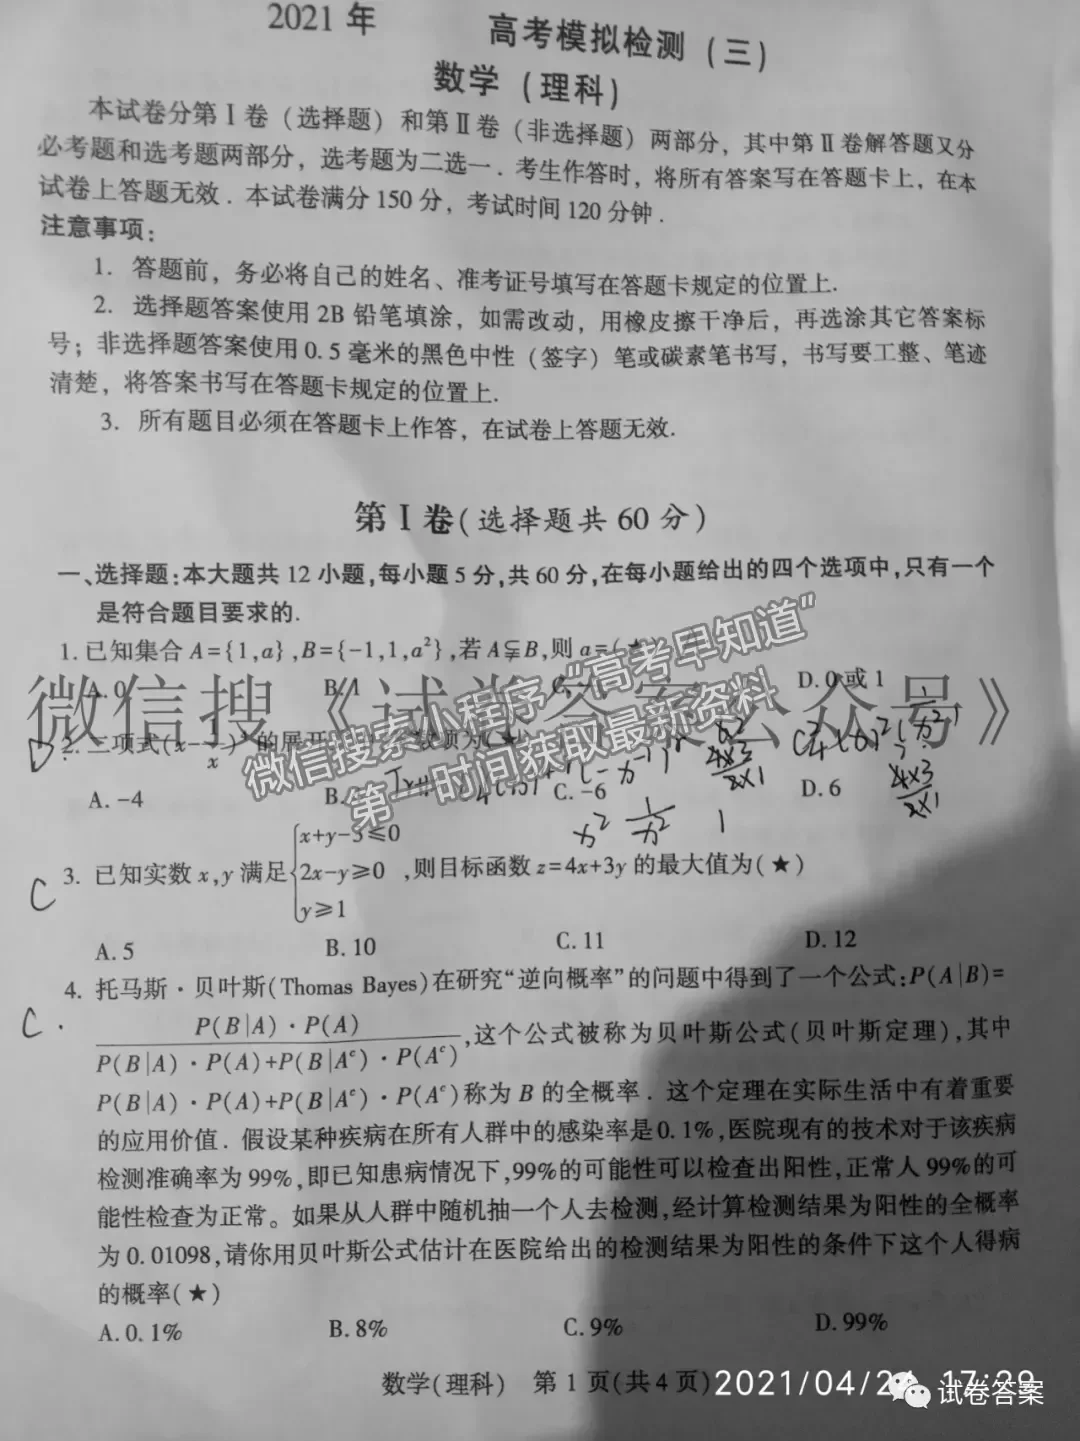 2021年 高考模拟检测(三)
数学(理科)
本试卷分第Ⅰ卷(选择题)和第Ⅱ卷(非选择题)两部分，其中第Ⅱ卷解答题又分
必考题和选考题两部分，选考题为二选一．考生作答时，将所有答案写在答题卡上，在本
试卷上答题无效．本试卷满分150分，考试时间120分钟．
注意事项：
1．答题前，务必将自己的姓名、准考证号填写在答题卡规定的位置上．
2．选择题答案使用2B铅笔填涂，如需改动，用橡皮擦干净后，再选涂其它答案标
号；非选择题答案使用0.5毫米的黑色中性(签字)笔或碳素笔书写，书写要工整、笔迹
清楚，将答案书写在答题卡规定的位置上．
3．所有题目必须在答题卡上作答，在试卷上答题无效．
第Ⅰ卷(选择题共60分)
一、选择题：本大题共12小题，每小题5分，共60分，在每小题给出的四个选项中，只有一个
是符合题目要求的．
1．已知集合A={1,a},B={-1,1,a²},若A⫋B,则a=(★)
A.0 B.1 D.0或1
微信搜《试卷答案公众号》
微信搜索小程序“高考早知道”
第一时间获取最新资料
D 2．二项式(x-1/x) 的展开 数项为(★)
A.-4 B. C.-6 D.6
C 3．已知实数x,y满足{x+y-3≤0
2x-y≥0 ,则目标函数z=4x+3y的最大值为(★)
y≥1
A.5 B.10 C.11 D.12
4．托马斯·贝叶斯(Thomas Bayes)在研究“逆向概率”的问题中得到了一个公式:P(A|B)=
C. P(B|A)·P(A)
P(B|A)·P(A)+P(B|Aᶜ)·P(Aᶜ) ,这个公式被称为贝叶斯公式(贝叶斯定理),其中
P(B|A)·P(A)+P(B|Aᶜ)·P(Aᶜ)称为B的全概率．这个定理在实际生活中有着重要
的应用价值．假设某种疾病在所有人群中的感染率是0.1%,医院现有的技术对于该疾病
检测准确率为99%,即已知患病情况下,99%的可能性可以检查出阳性,正常人99%的可
能性检查为正常。如果从人群中随机抽一个人去检测,经计算检测结果为阳性的全概率
为0.01098,请你用贝叶斯公式估计在医院给出的检测结果为阳性的条件下这个人得病
的概率(★)
A.0.1% B.8% C.9% D.99%
数学(理科) 第1页(共4页)
试卷答案